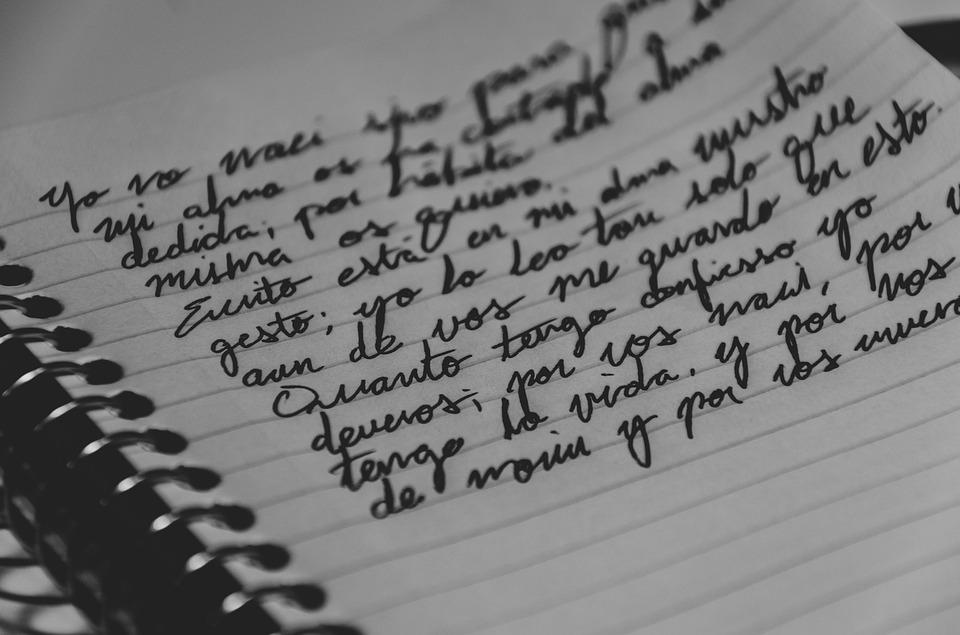 Yo no naci sino para
mi alma os ha cortado a su
dedida; por hábito del alma
misma os quiero.
Escrito está en mi alma vuestro
gesto; yo lo leo tan solo que
aun de vos me guardo en esto.
Quanto tengo confiesso yo
deveros; por vos naci, por v
tengo la vida, y por vos
de morir y por vos muero